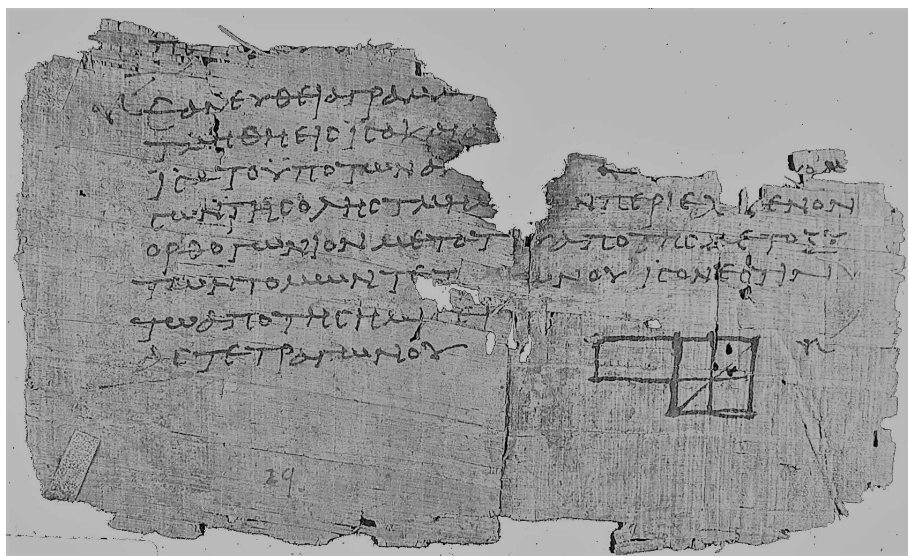 ΕΑΝ ΕΥΘΕΙΑ ΓΡΑΜΜ
ΤΜΗΘΗ ΕΙΣ ΙΣΑ ΚΑΙ
ΙΣΑ ΤΟ ΥΠΟ ΤΩΝ
ΣΩΝ ΤΗΣ ΟΛΗΣ ΤΜΗΜ ΩΝ ΠΕΡΙΕΧ ΜΕΝΟΝ
ΟΡΘΟΓΩΝΙΟΝ ΜΕΤΑ ΤΟΥ ΑΠΟ ΤΗΣ ΜΕΤΟΞΥ
ΤΩΝ ΤΟΜΩΝ ΤΕΤ ΩΝΟΥ ΙΣΟΝ ΕΣΤΙΝ
ΤΩ ΑΠΟ ΤΗΣ ΗΜΙΣ
ΑΣ ΤΕΤΡΑΓΩΝΟΥ
29